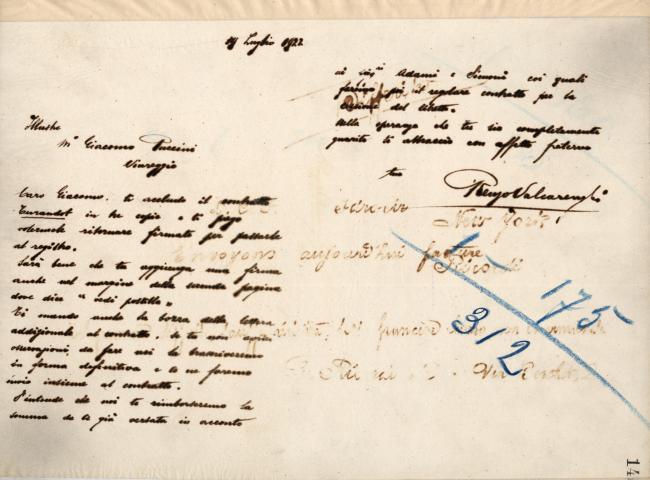 Luglio 1922
Illustre
Mº Giacomo Puccini
Viareggio
Caro Giacomo, ti accludo il contratto
Turandot in tre copie e ti prego
volermele ritornare firmate per passarle
al registro.
Sarà bene che tu aggiunga una firma
anche nel margine della seconda pagina
dove dice "vedi postilla"
Ti mando anche la bozza della lettera
addizionale al contratto. Se tu non avrai
osservazioni da fare noi la trascriveremo
in forma definitiva e te ne faremo
invio insieme al contratto.
S'intende che noi ti rimborseremo la
somma da te già versata in acconto
ai Adami e Simoni coi quali
faremo poi il regolare contratto per la
cessione del libretto.
Nella speranza che tu sia completamente
guarito ti abbraccio con affetto fraterno
tuo
Renzo Valcarenghi
New York
Envoyons aujourd'hui facture
Ricordi
175
312
14